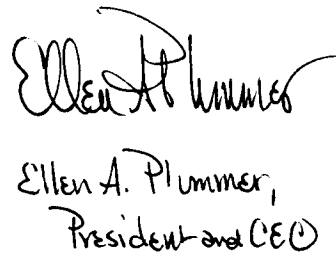 Ellen A Plummer
Ellen A. Plummer,
President and CEO